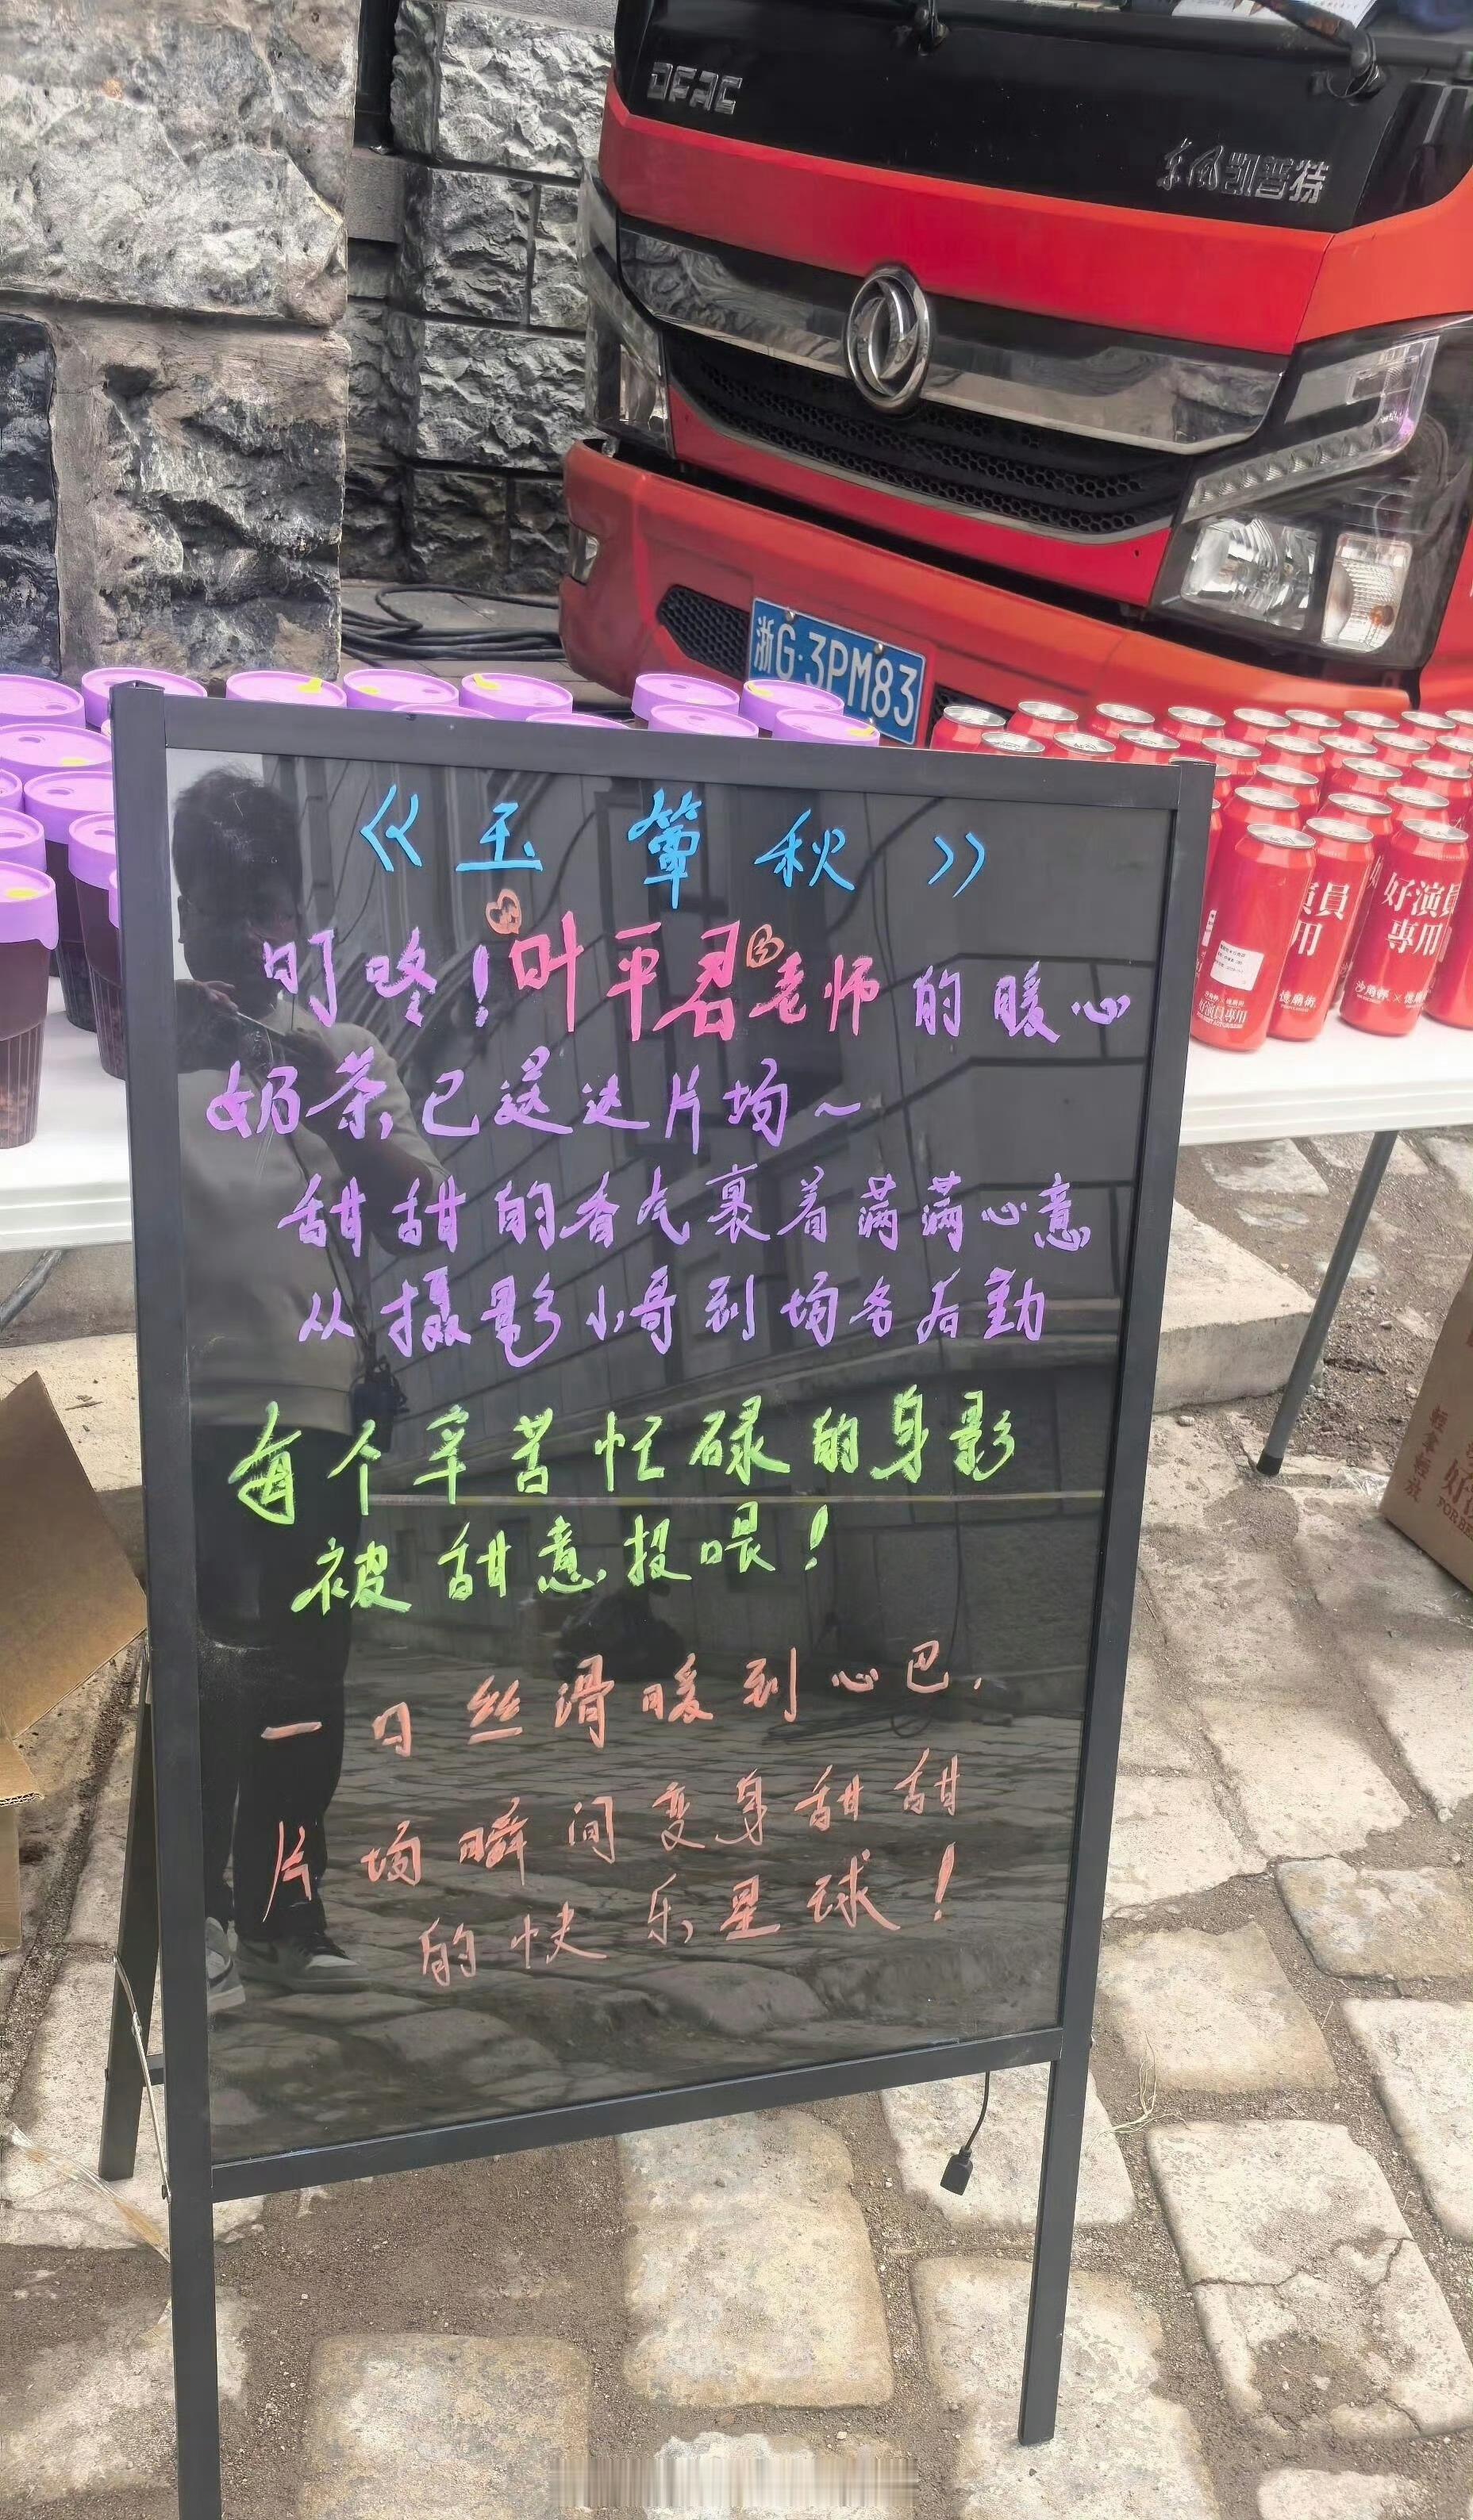 DFAC
东风凯普特
浙G·3PM83
《玉簟秋》
叮咚！叶平君老师的暖心
奶茶,已送达片场~
甜甜的香气裹着满满心意
从摄影小哥到场务后勤
每个辛苦忙碌的身影
被甜意投喂！
一口丝滑暖到心巴,
片场瞬间变身甜甜
的快乐星球！
好演員
專用
好演員專用
輕拿輕放